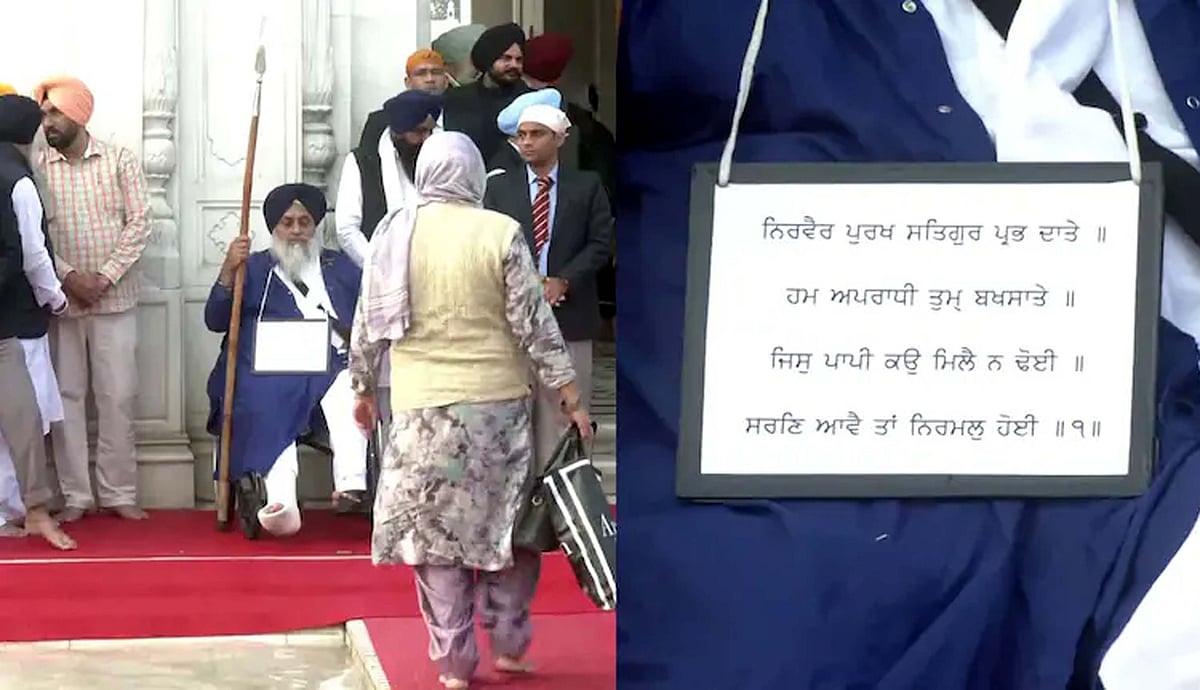 ਨਿਰਵੈਰ ਪੁਰਖ ਸਤਿਗੁਰ ਪ੍ਰਭ ਦਾਤੇ ॥
ਹਮ ਅਪਰਾਧੀ ਤੁਮ੍ ਬਖਸਾਤੇ ॥
ਜਿਸੁ ਪਾਪੀ ਕਉ ਮਿਲੈ ਨ ਢੋਈ ॥
ਸਰਣਿ ਆਵੈ ਤਾਂ ਨਿਰਮਲੁ ਹੋਈ ॥੧॥